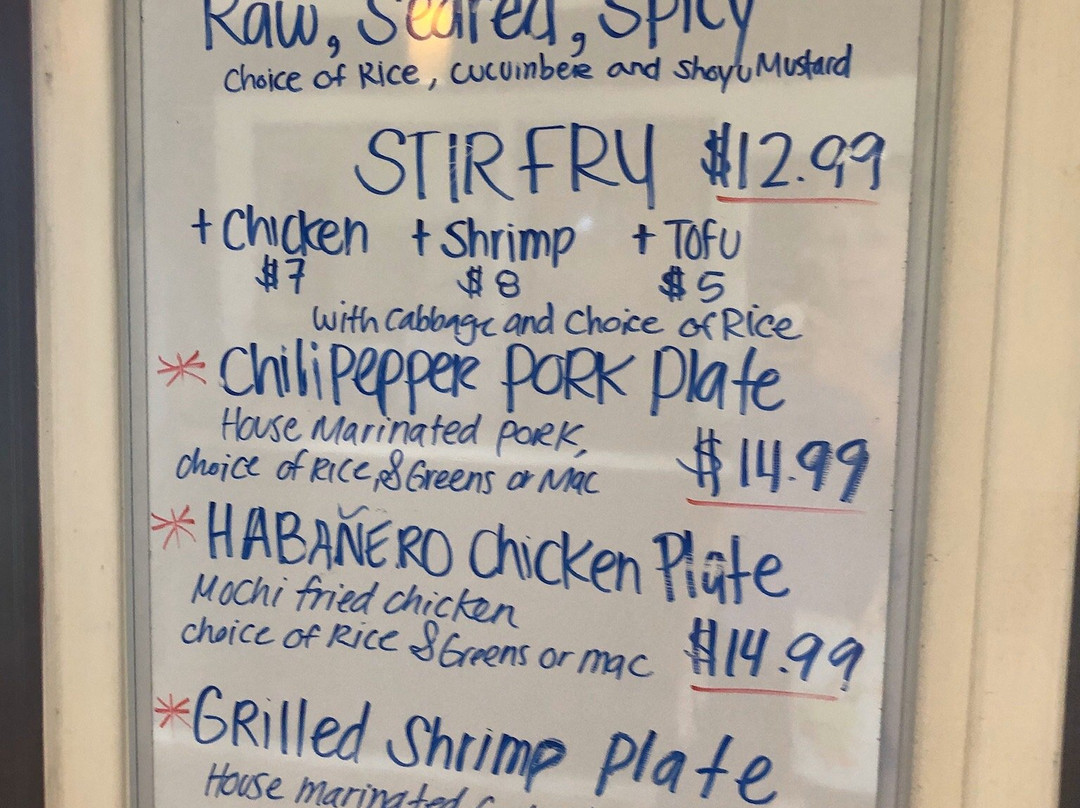 Raw, Seared, Spicy
Choice of Rice, cucumber and Shoyu Mustard
STIR FRY $12.99
+ Chicken + Shrimp + Tofu
$7 $8 $5
with cabbage and choice of Rice
* Chili Pepper PORK Plate
House Marinated PORK,
choice of Rice, & Greens or Mac $14.99
* HABAÑERO Chicken Plate
Mochi fried chicken
choice of Rice & Greens or mac $14.99
* GRilled Shrimp Plate
House marinated